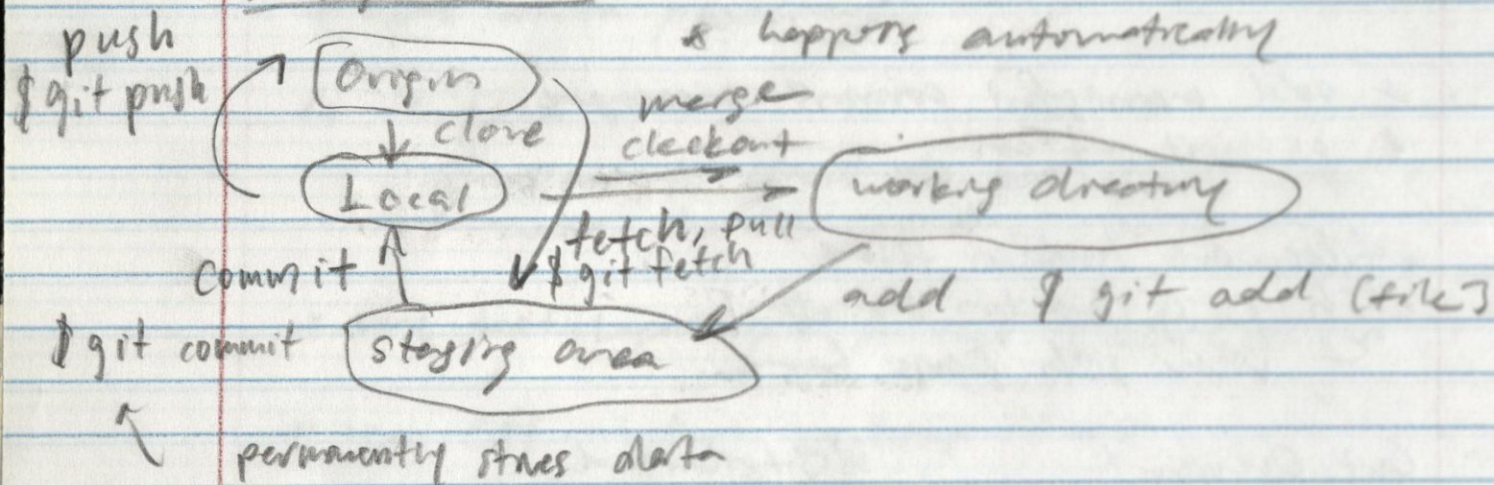 push
$ git push
* happens automatically
Origin
merge
clone
checkout
Local
working directory
fetch, pull
$ git fetch
commit
add $ git add [file]
$ git commit
staging area
permanently stores data